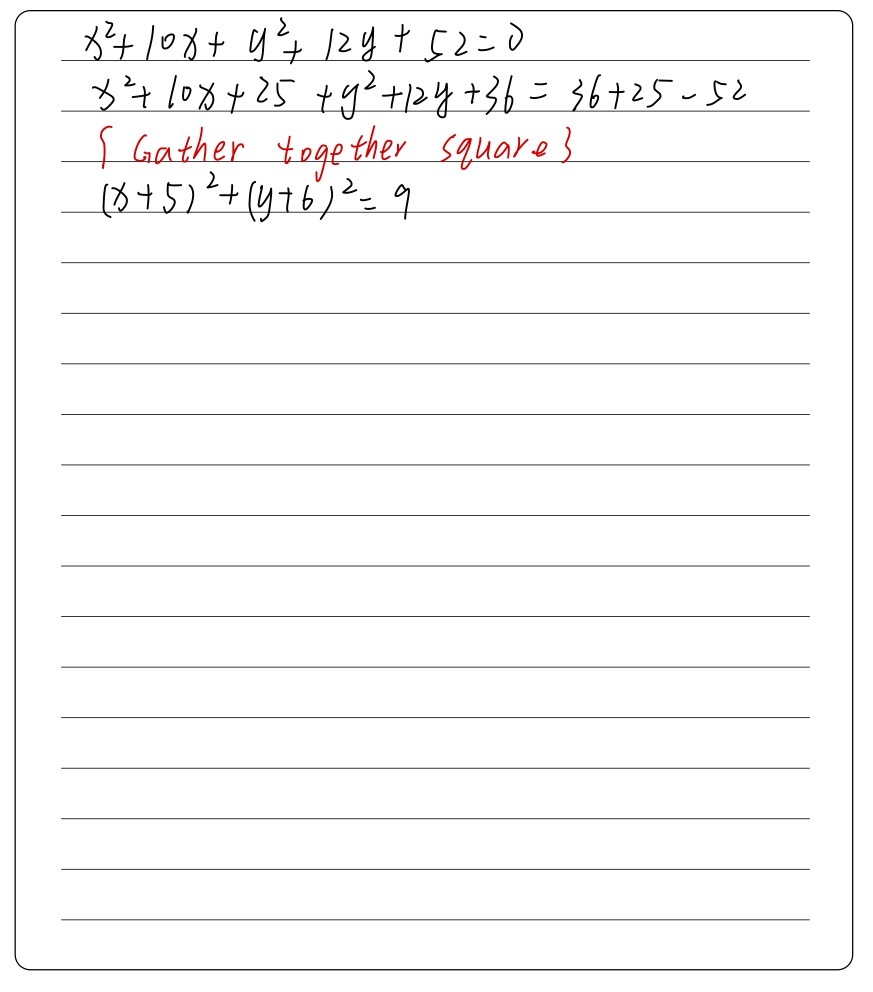 x²+10x+y²+12y+52=0
x²+10x+25+y²+12y+36=36+25-52
{Gather together square}
(x+5)²+(y+6)²=9